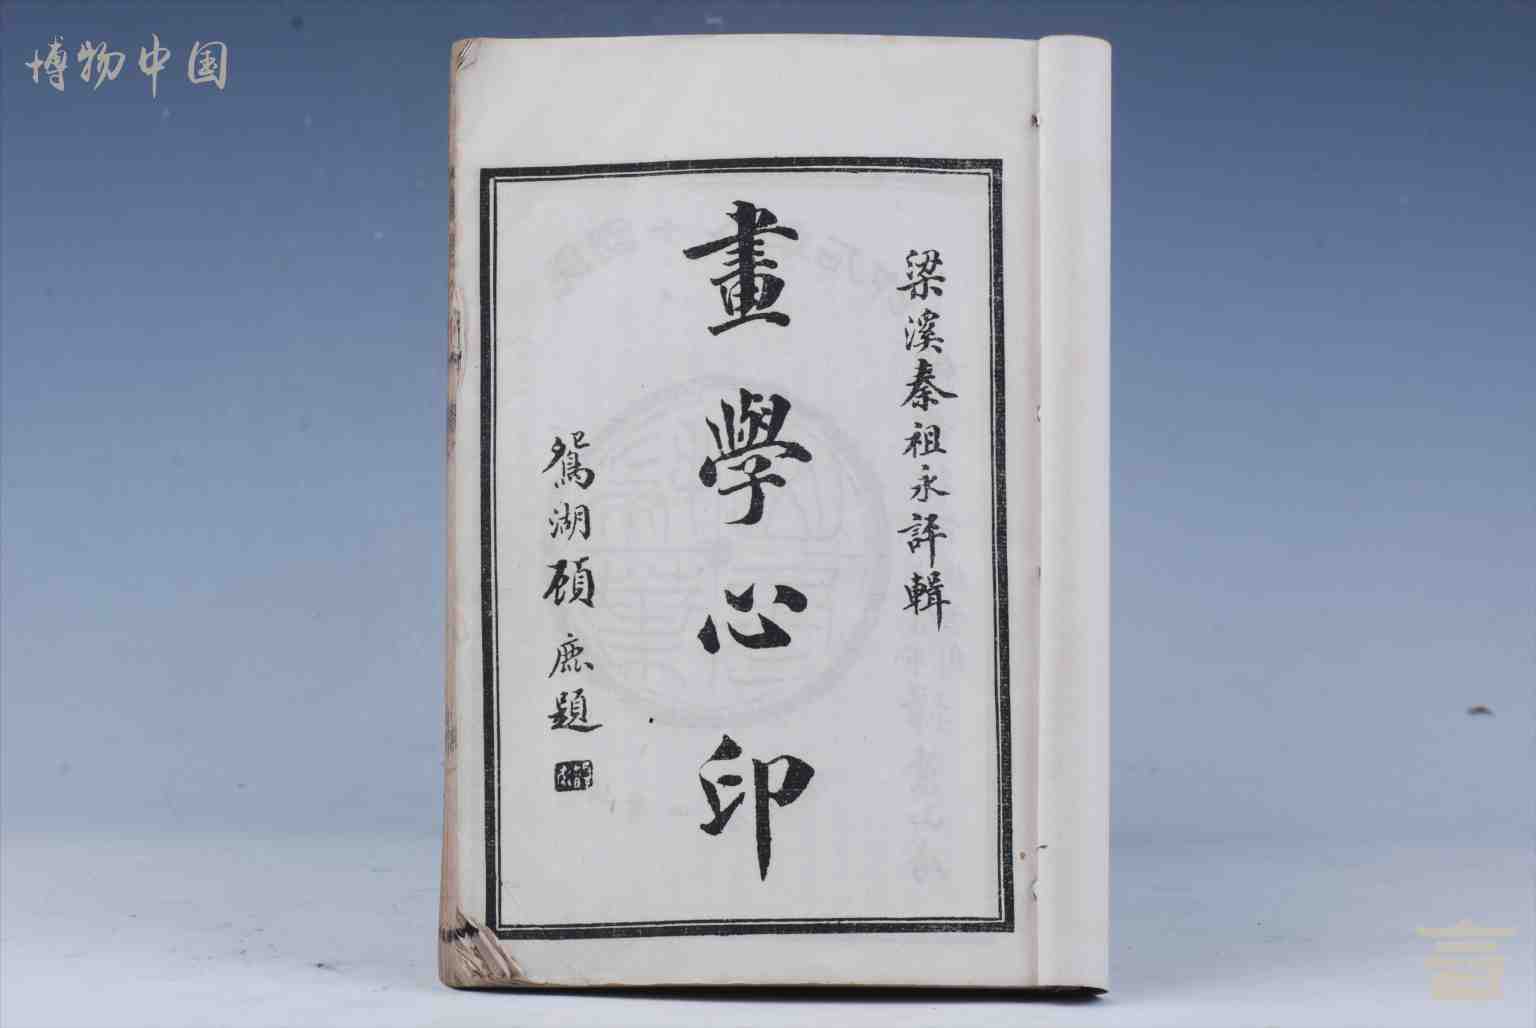 博物中国
梁溪秦祖永評輯
畫學心印
鴛湖頋鹿題